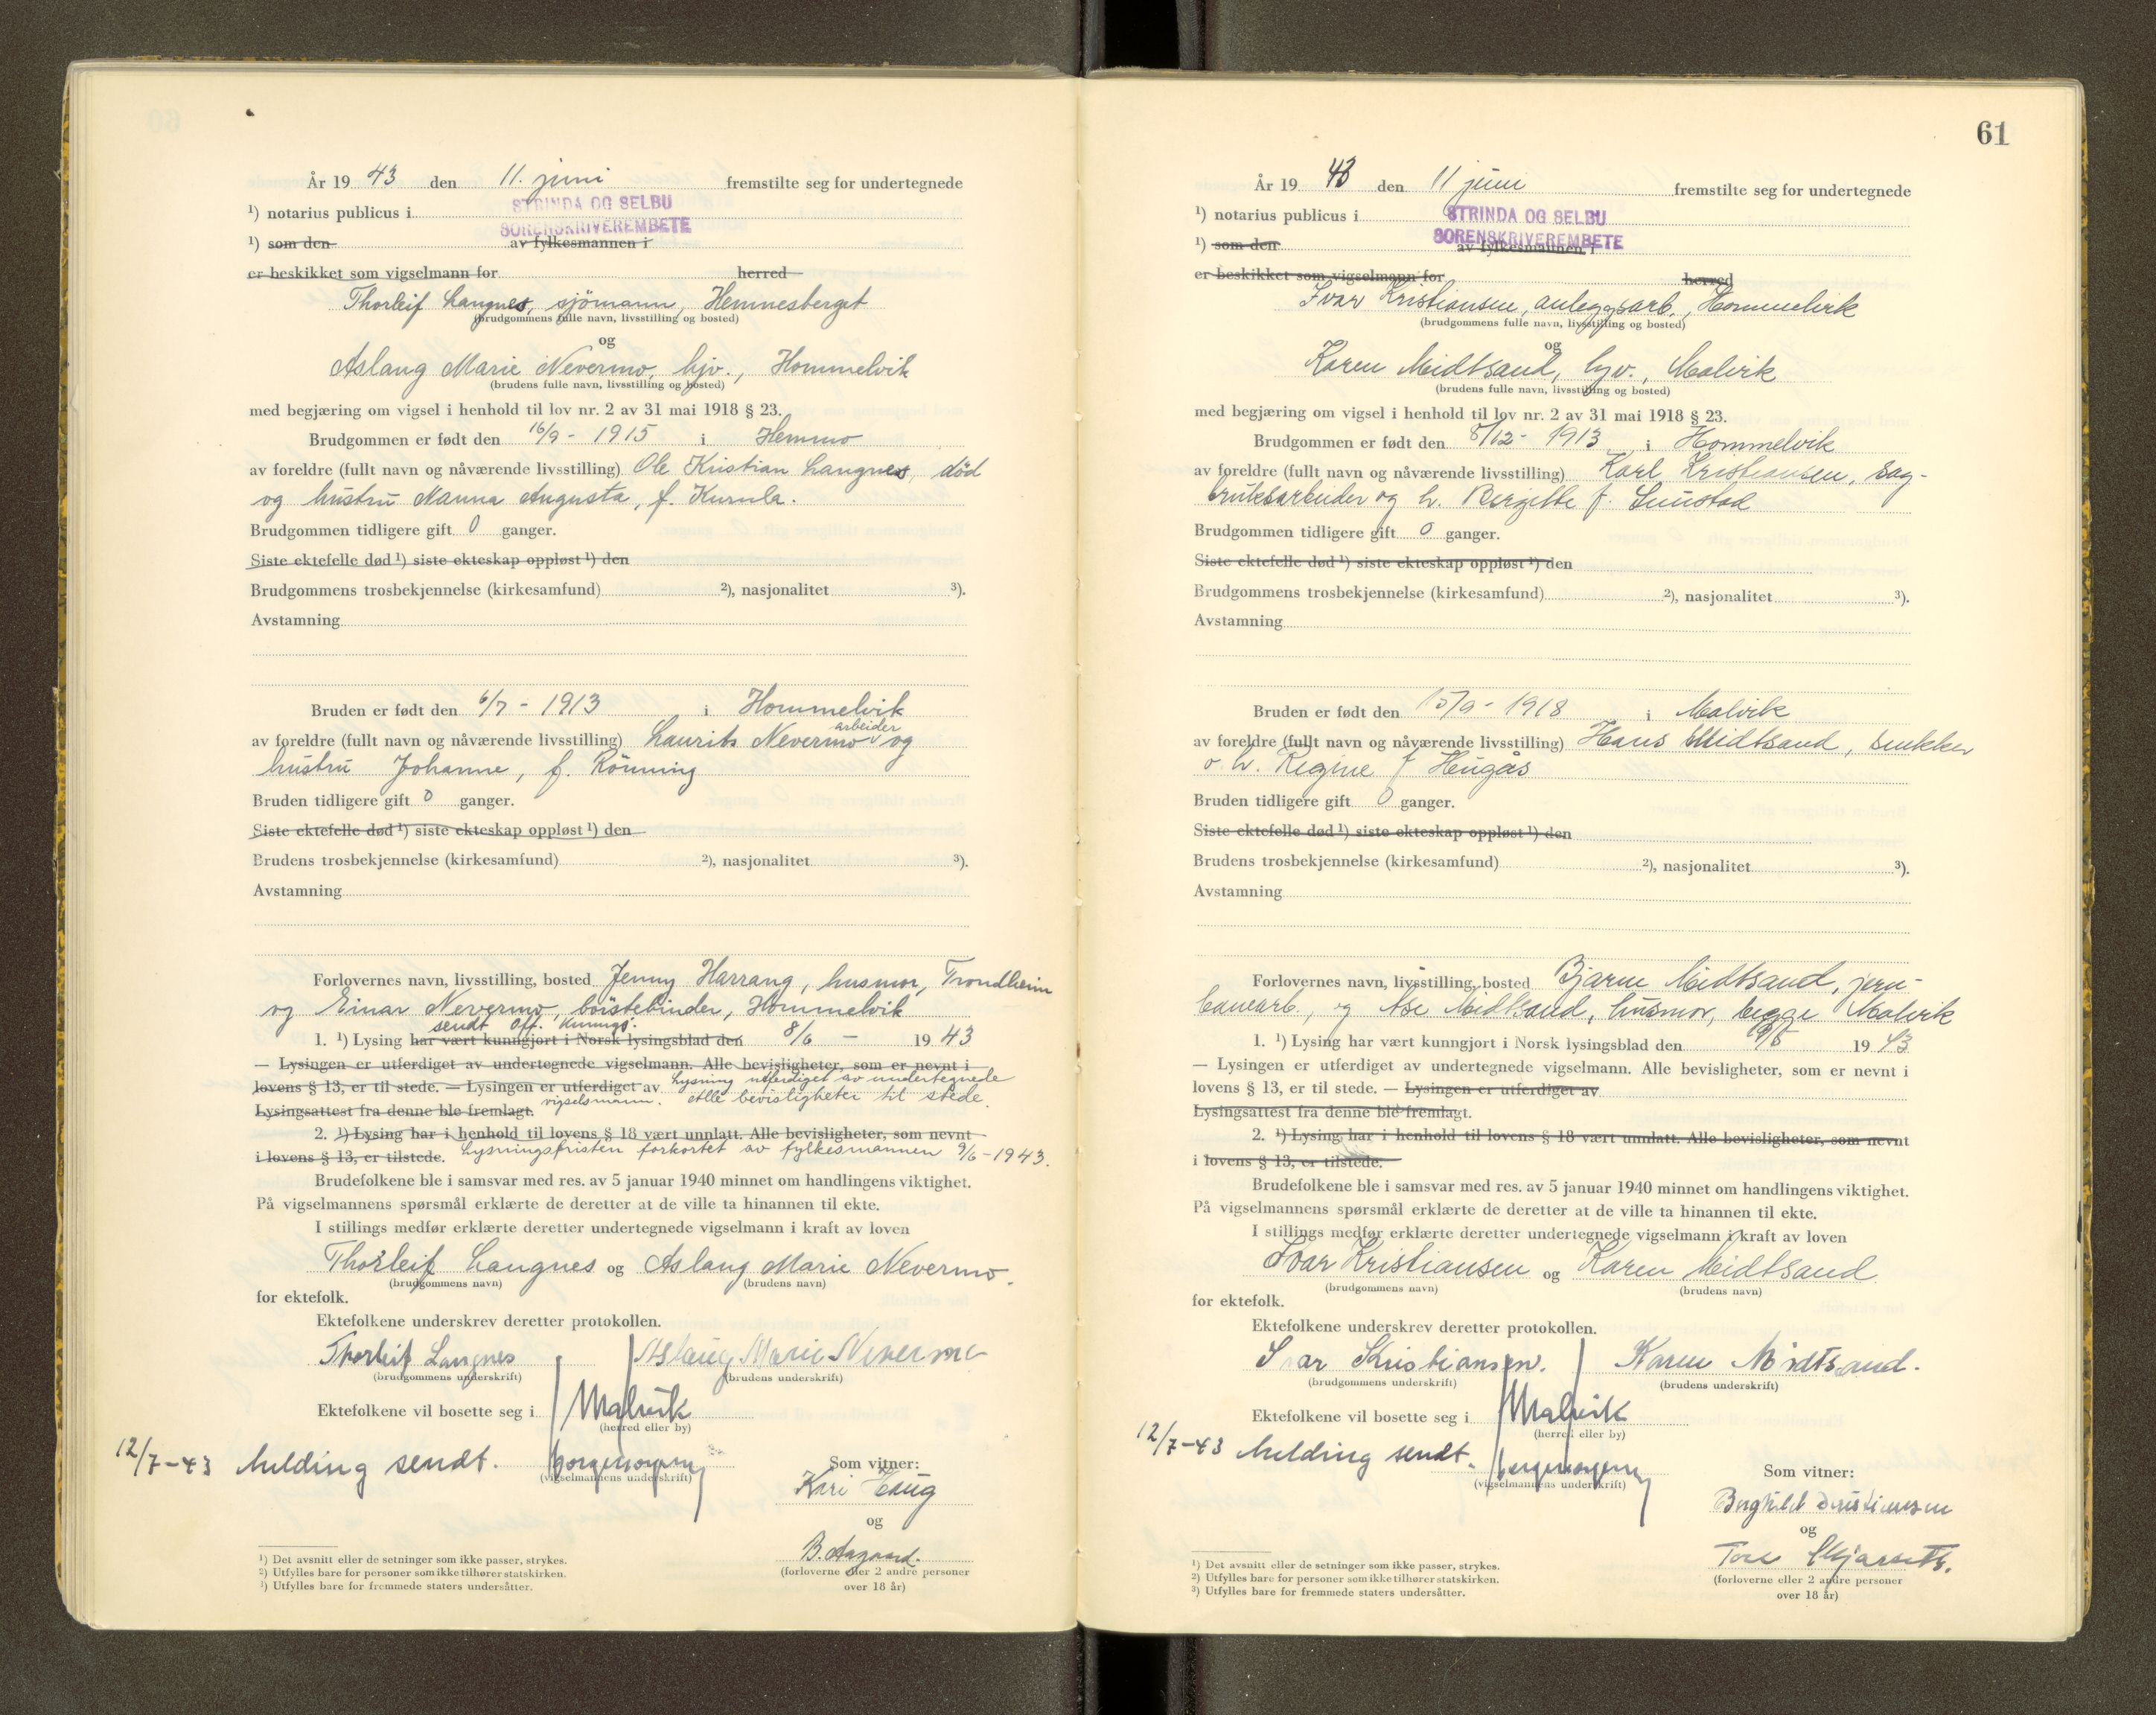 År 19 43 den 11. juni fremstilte seg for undertegnede
¹) notarius publicus i STRINDA OG SELBU
SORENSKRIVEREMBETE
¹) som den av fylkesmannen i
er beskikket som vigselmann for herred
Thorleif Langnes, sjömann, Hemnesberget
(brudgommens fulle navn, livsstilling og bosted)
og
Aslaug Marie Nevermo, hjv., Hommelvik
(brudens fulle navn, livsstilling og bosted)
med begjæring om vigsel i henhold til lov nr. 2 av 31 mai 1918 § 23.
Brudgommen er født den 16/9 - 1915 i Hemno
av foreldre (fullt navn og nåværende livsstilling) Ole Kristian Langnes, död
og hustru Nanna Augusta, f.
Brudgommen tidligere gift 0 ganger.
Siste ektefelle død ¹) siste ekteskap oppløst ¹) den
Brudgommens trosbekjennelse (kirkesamfund) ²), nasjonalitet ³).
Avstamning
Bruden er født den 6/7 - 1913 i Hommelvik
av foreldre (fullt navn og nåværende livsstilling) Laurits Nevermo arbeider og
hustru Johanne, f. Rönning
Bruden tidligere gift 0 ganger.
Siste ektefelle død ¹) siste ekteskap oppløst ¹) den
Brudens trosbekjennelse (kirkesamfund) ²), nasjonalitet ³).
Avstamning
Forlovernes navn, livsstilling, bosted Jenny Harrang, husmor, Trondheim
og Einar Nevermo, börstebinder, Hommelvik
sendt Off. kunngj.
1. ¹) Lysing har vært kunngjort i Norsk lysingsblad den 8/6 - 19 43
— Lysingen er utferdiget av undertegnede vigselmann. Alle bevisligheter, som er nevnt i
lovens § 13, er til stede. — Lysingen er utferdiget av Lysning utferdiget av undertegnede
Lysingsattest fra denne ble fremlagt. vigselsmann. Alle bevisligheter til stede.
2. ¹) Lysing har i henhold til lovens § 18 vært unnlatt. Alle bevisligheter, som nevnt
i lovens § 13, er tilstede. Lysningsfristen forkortet av fylkesmannen 9/6 - 1943.
Brudefolkene ble i samsvar med res. av 5 januar 1940 minnet om handlingens viktighet.
På vigselmannens spørsmål erklærte de deretter at de ville ta hinannen til ekte.
I stillings medfør erklærte deretter undertegnede vigselmann i kraft av loven
Thorleif Langnes og Aslaug Marie Nevermo.
(brudgommens navn) (brudens navn)
for ektefolk.
Ektefolkene underskrev deretter protokollen.
Thorleif Langnes Aslaug Marie Nevermo
(brudgommens underskrift) (brudens underskrift)
Ektefolkene vil bosette seg i Malvik
(herred eller by)
12/7-43 Melding sendt.
(vigselmannens underskrift)
Som vitner:
Kari Haug
og
B. Aagaard.
(forloverne eller 2 andre personer
over 18 år)
¹) Det avsnitt eller de setninger som ikke passer, strykes.
²) Utfylles bare for personer som ikke tilhører statskirken.
³) Utfylles bare for fremmede staters undersåtter.
61
År 19 43 den 11 juni fremstilte seg for undertegnede
¹) notarius publicus i STRINDA OG SELBU
SORENSKRIVEREMBETE
¹) som den av fylkesmannen i
er beskikket som vigselmann for herred
Ivar Kristiansen, anleggsarb., Hommelvik
(brudgommens fulle navn, livsstilling og bosted)
og
Karen Midtsand, hjv., Malvik
(brudens fulle navn, livsstilling og bosted)
med begjæring om vigsel i henhold til lov nr. 2 av 31 mai 1918 § 23.
Brudgommen er født den 8/12 - 1913 i Hommelvik
av foreldre (fullt navn og nåværende livsstilling) Karl Kristiansen, sag-
bruksarbeider og h. Bergitte f.
Brudgommen tidligere gift 0 ganger.
Siste ektefelle død ¹) siste ekteskap oppløst ¹) den
Brudgommens trosbekjennelse (kirkesamfund) ²), nasjonalitet ³).
Avstamning
Bruden er født den 1918 i Malvik
av foreldre (fullt navn og nåværende livsstilling) Hans Midtsand, snekker
o h. Regine f Haugås
Bruden tidligere gift 0 ganger.
Siste ektefelle død ¹) siste ekteskap oppløst ¹) den
Brudens trosbekjennelse (kirkesamfund) ²), nasjonalitet ³).
Avstamning
Forlovernes navn, livsstilling, bosted Bjarne Midtsand, jern-
banearb., og Åse Midtsand, husmor, begge Malvik
1. ¹) Lysing har vært kunngjort i Norsk lysingsblad den 19 43
— Lysingen er utferdiget av undertegnede vigselmann. Alle bevisligheter, som er nevnt i
lovens § 13, er til stede. — Lysingen er utferdiget av
Lysingsattest fra denne ble fremlagt.
2. ¹) Lysing har i henhold til lovens § 18 vært unnlatt. Alle bevisligheter, som nevnt
i lovens § 13, er tilstede.
Brudefolkene ble i samsvar med res. av 5 januar 1940 minnet om handlingens viktighet.
På vigselmannens spørsmål erklærte de deretter at de ville ta hinannen til ekte.
I stillings medfør erklærte deretter undertegnede vigselmann i kraft av loven
Ivar Kristiansen og Karen Midtsand
(brudgommens navn) (brudens navn)
for ektefolk.
Ektefolkene underskrev deretter protokollen.
Ivar Kristiansen. Karen Midtsand.
(brudgommens underskrift) (brudens underskrift)
Ektefolkene vil bosette seg i Malvik
(herred eller by)
12/7-43 Melding sendt.
(vigselmannens underskrift)
Som vitner:
Borghild Kristiansen
og
Tore
(forloverne eller 2 andre personer
over 18 år)
¹) Det avsnitt eller de setninger som ikke passer, strykes.
²) Utfylles bare for personer som ikke tilhører statskirken.
³) Utfylles bare for fremmede staters undersåtter.